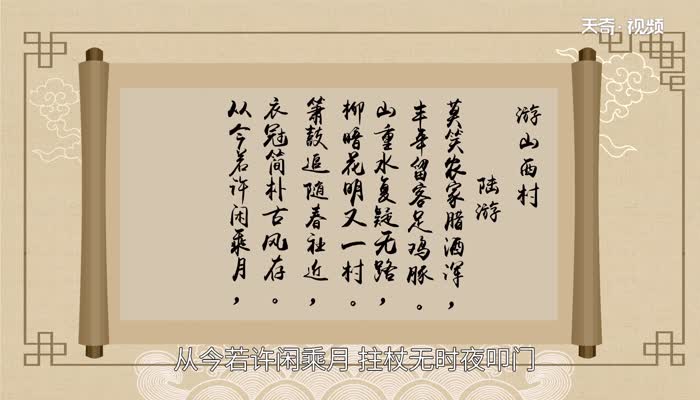 天奇·视频
游山西村
陆游
莫笑农家腊酒浑，
丰年留客足鸡豚。
山重水复疑无路，
柳暗花明又一村。
箫鼓追随春社近，
衣冠简朴古风存。
从今若许闲乘月，
从今若许闲乘月 拄杖无时夜叩门